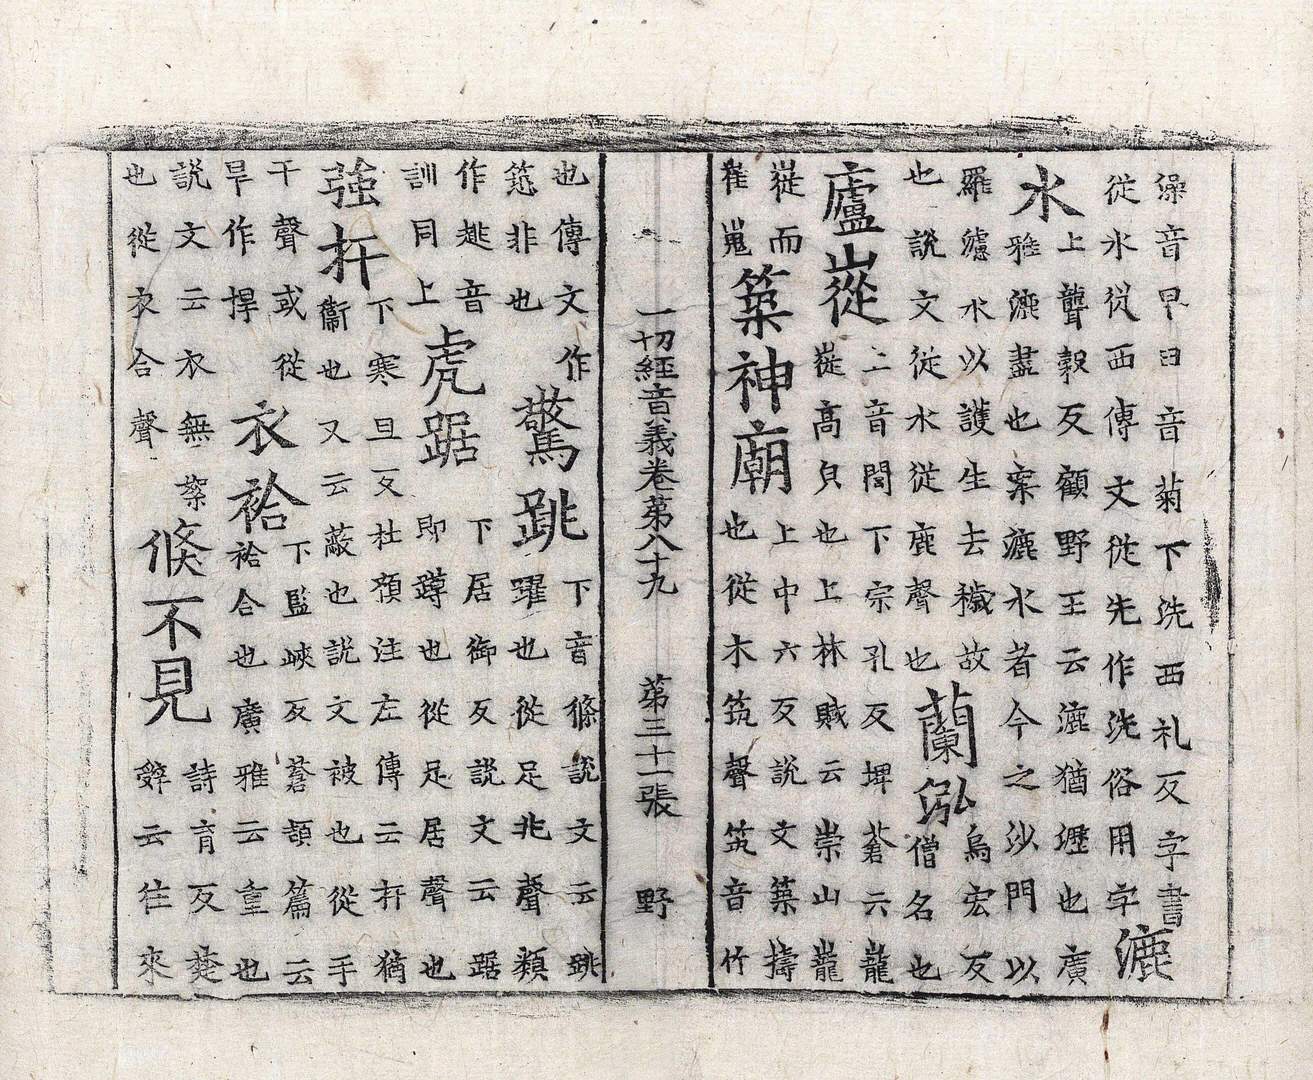 澡音早曰音菊下洗西礼反字書
從水從西傳文從先作洗俗用字
漉
水
上聾穀反顧野王云漉猶瀝也廣
雅漉盡也案漉水者今之沙門以
羅濾水以護生去穢故
也說文從水從鹿聲也
蘭泓
烏宏反
僧名也
廬嵷
二音間下宗孔反埤蒼云巃
嵷高皃也上林賦云崇山巃
嵷而
嶊嵬
築神廟
上中六反說文築擣
也從木筑聲筑音竹
一切經音義卷第八十九 第三十一張 野
也傳文作
筑非也
驚跳
下音條說文云跳
躍也從足兆聲類
作趒音
訓同上
虎踞
下居御反說文云踞
即蹲也從足居聲也
強扞
下寒旦反杜預注左傳云扞猶
衞也又云蔽也說文被也從手
干聲或從
旱作捍
衣袷
下監峽反蒼頡篇云
袷合也廣雅云重也
說文云衣無絮
也從衣合聲
倏不見
詩育反楚
辤云往來